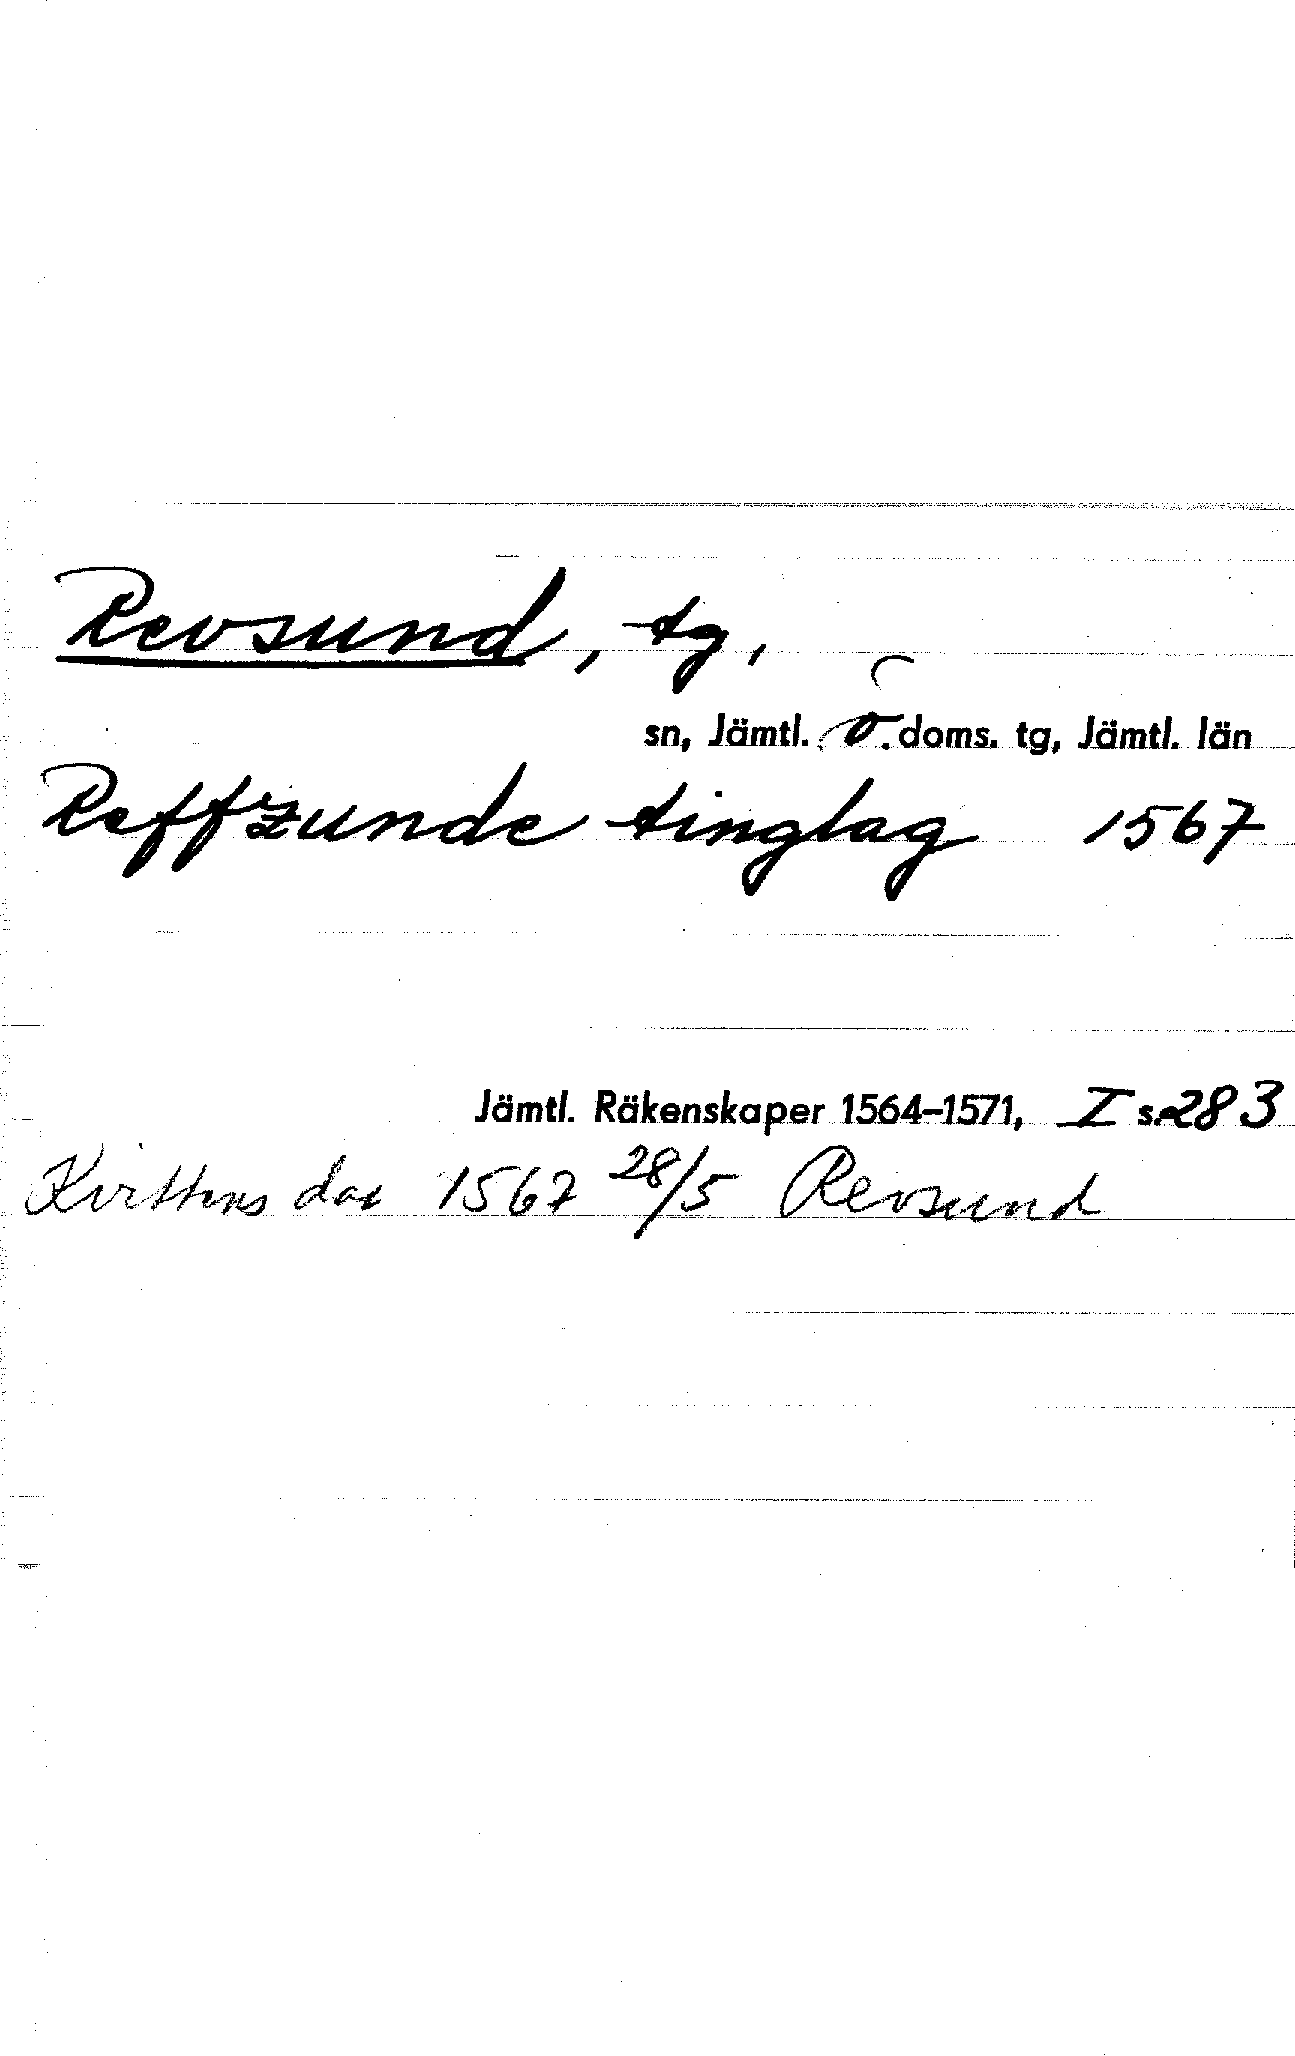 Revsund, tg,
sn, Jämtl. ö. doms. tg, Jämtl. län
Reffzunde tinglag 1567
Jämtl. Räkenskaper 1564–1571, I s. 283
Kvittens dat 1567 28/5 Revsund